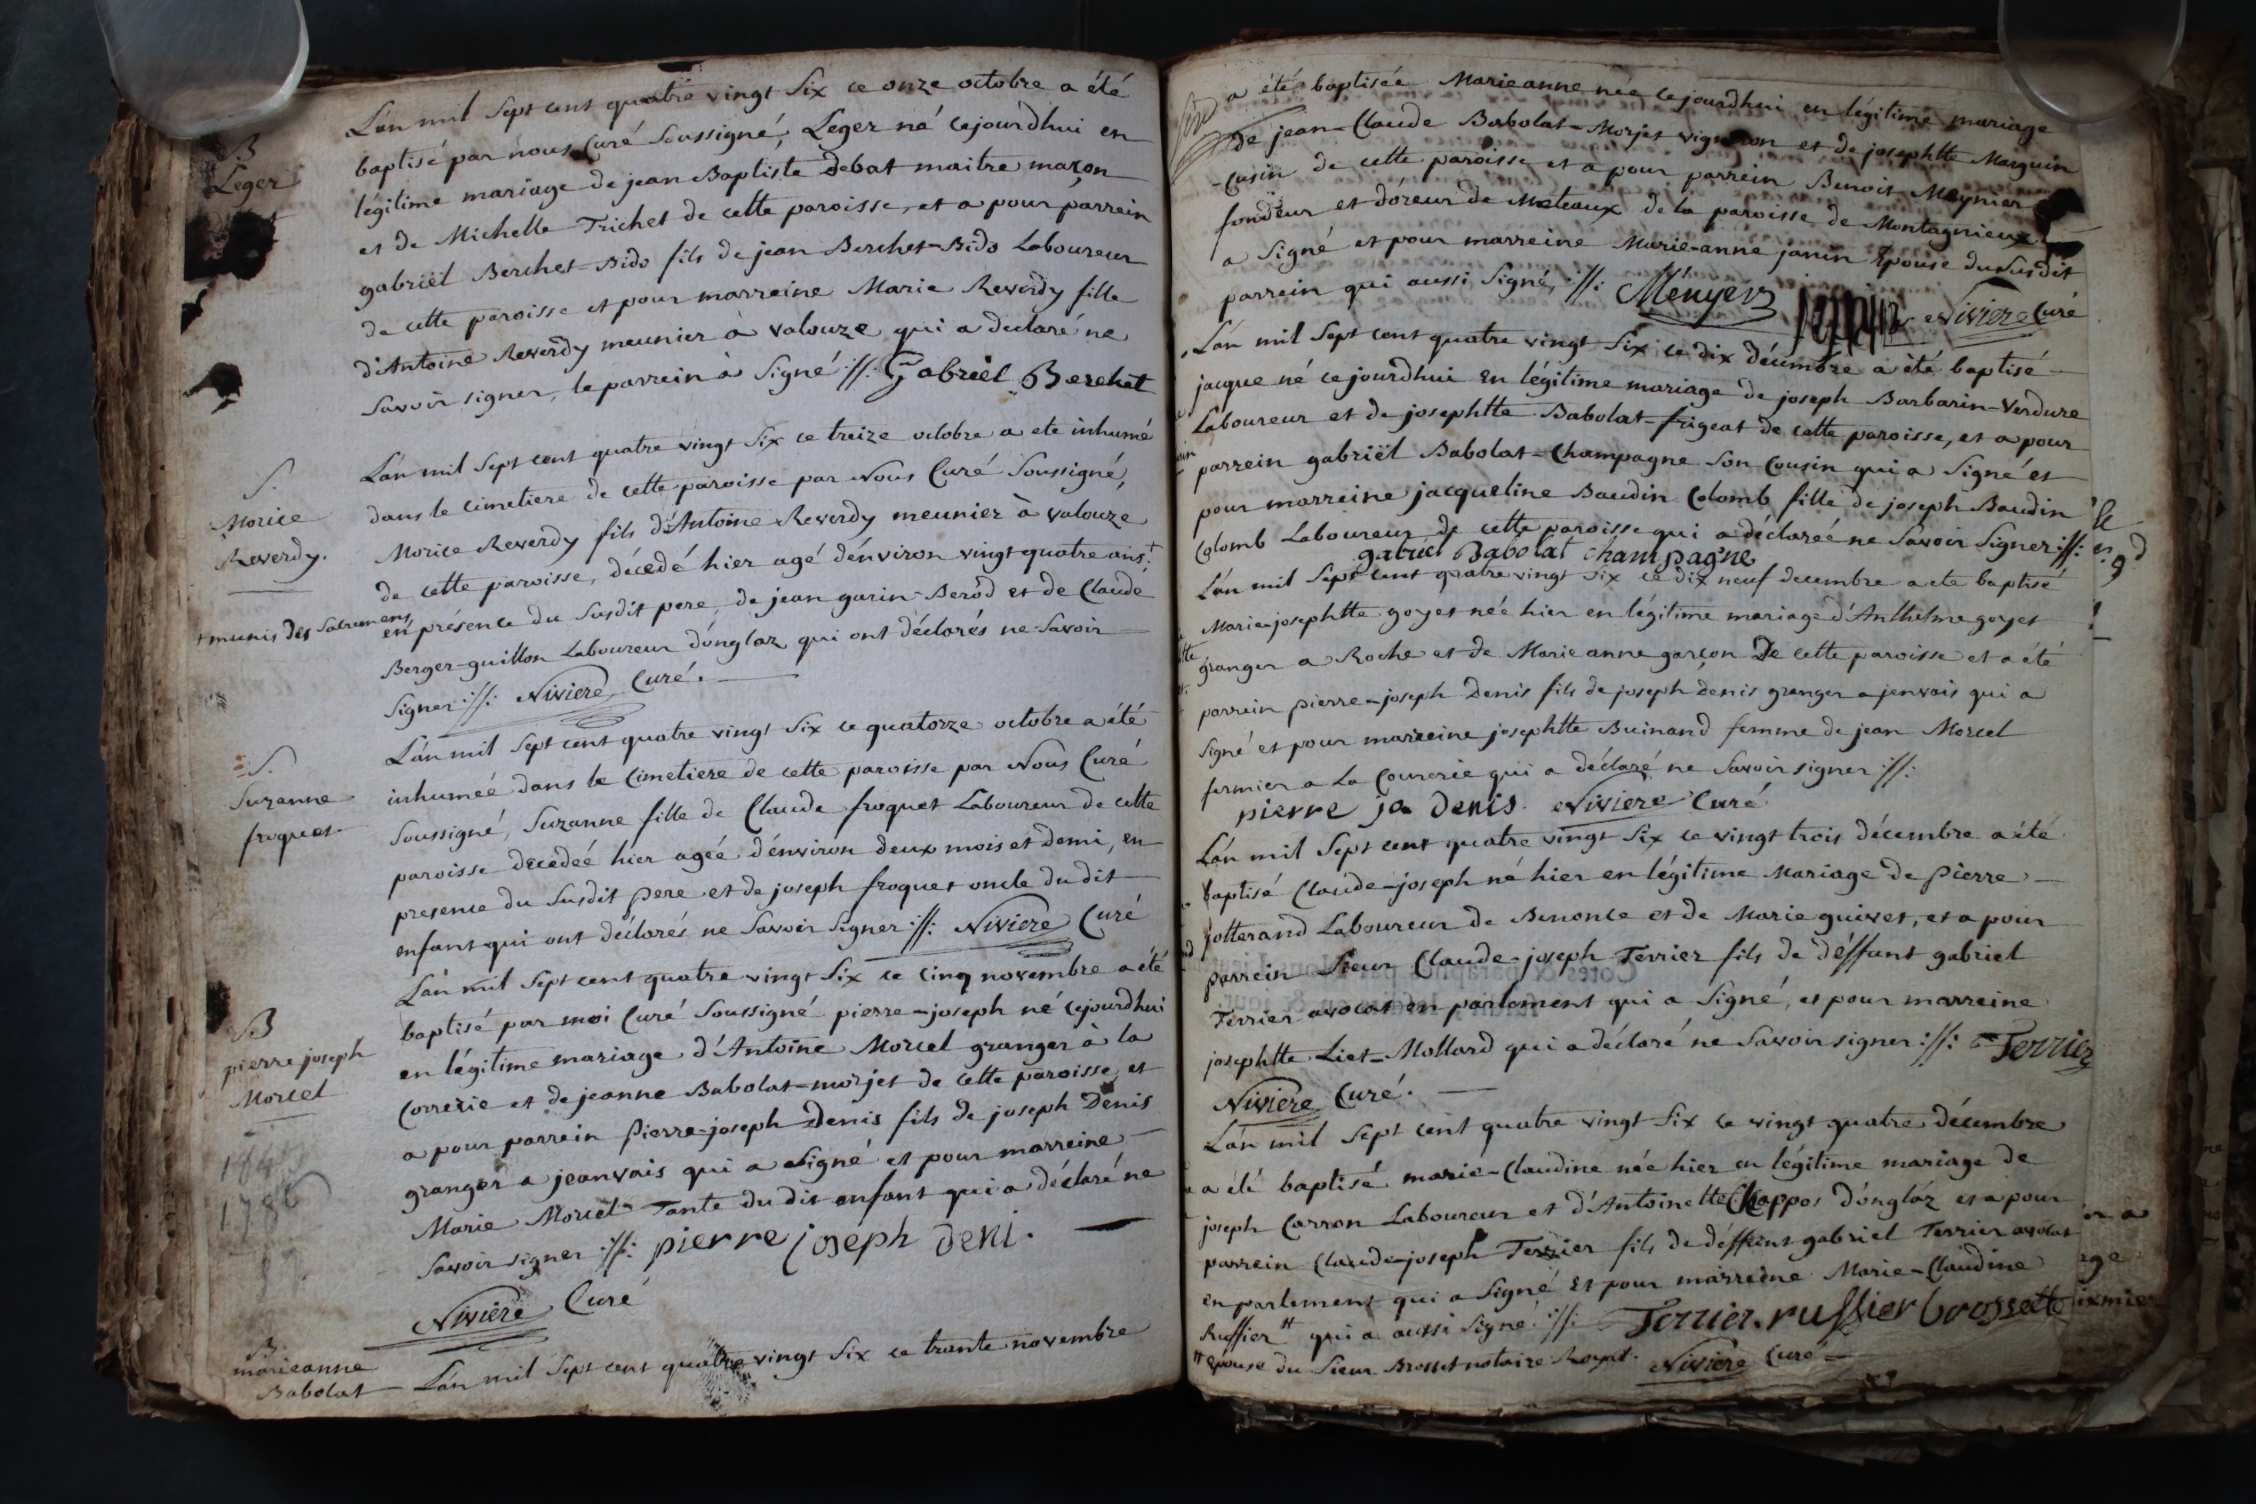 B
Leger
L'an mil Sept cent quatre vingt Six ce onze octobre a été
baptisé par nous Curé Soussigné, Leger né cejourdhui en
légitime mariage de jean Baptiste Debat maitre maçon
et de Michelle Trichet de cette paroisse, et a pour parrein
gabriël Berchet-Bido fils de jean Berchet-Bido Laboureur
de cette paroisse et pour marreine Marie Reverdy fille
d'Antoine Reverdy meunier à valouze qui a declaré ne
Savoir signer, le parrein à Signé :/: Gabriel Berchet
S.
Morice
Reverdy.
L'an mil Sept cent quatre vingt Six ce treize octobre a ete inhumé
dans le Cimetiere de cette paroisse par Nous Curé Soussigné,
Morice Reverdy fils d'Antoine Reverdy meunier à valouze
de cette paroisse, décédé hier agé d'énviron vingt quatre ans +
+ munis des Sacremens
en présence du Susdit pere, de jean garin-Berod et de Claude
Berger-guillon Laboureur d'onglaz qui ont déclarés ne Savoir
Signer :/: Niviere Curé.
S.
Suzanne
froquet
L'an mil Sept cent quatre vingt Six ce quatorze octobre a été
inhumée dans le Cimetiere de cette paroisse par Nous Curé
Soussigné, Suzanne fille de Claude froquet Laboureur de cette
paroisse décedée hier agée d'énviron deux mois et demi, en
presence du Susdit pere et de joseph froquet oncle du dit
enfant qui ont déclarés ne Savoir Signer :/: Niviere Curé
B
pierre joseph
Morcel
L'an mil Sept cent quatre vingt Six ce Cinq novembre a été
baptisé par moi Curé Soussigné pierre-joseph né cejourdhui
en légitime mariage d'Antoine Morcel granger à la
Correrie et de jeanne Babolat-morjet de cette paroisse, et
a pour parrein Pierre-joseph Denis fils de joseph Denis
granger a jeanvais qui a Signé et pour marreine
Marie Morcel Tante du dit enfant qui a déclaré ne
Savoir signer :/: pierre joseph Deni.
1786
Niviere Curé
B
marieanne
Babolat
L'an mil Sept cent quatre vingt Six ce trente novembre
a été baptisée Marieanne née cejourdhui en légitime mariage
de jean-Claude Babolat-Morjet vigneron et de josephtte Marguin
-Cusin de cette paroisse et a pour parrein Benoit Meynier
fondeur et doreur de Metaux de la paroisse de Montagnieux
a Signé et pour marreine Marie-anne janin Epouse du Susdit
parrein qui aussi Signé :/: Ményer Niviere Curé
L'an mil Sept cent quatre vingt Six ce dix décembre a été baptisé
jacque né cejourdhui en légitime mariage de joseph Barbarin-Verdure
Laboureur et de josephtte Babolat-frigeat de cette paroisse, et a pour
parrein gabriël Babolat-Champagne Son Cousin qui a Signé et
pour marreine jacqueline Baudin Colomb fille de joseph Baudin
Colomb Laboureur de cette paroisse qui a déclarée ne Savoir Signer :/:
gabriel Babolat champagne
L'an mil Sept cent quatre vingt Six ce dix neuf decembre a ete baptisé
Marie-josephtte goyet née hier en légitime mariage d'Anthelme goyet
granger a Roche et de Marie anne garçon De cette paroisse et a été
parrein pierre-joseph Denis fils de joseph Denis granger a jenvais qui a
Signé et pour marreine josephtte Buinand femme de jean Morcel
fermier a La Courerie qui a déclaré ne Savoir signer :/:
pierre jo Denis. Niviere Curé
L'an mil Sept cent quatre vingt Six ce vingt trois décembre a été
baptisé Claude-joseph né hier en légitime Mariage de Pierre
jotterand Laboureur de Benonce et de Marie guivet, et a pour
parrein Sieur Claude-joseph Terrier fils de déffunt gabriel
Terrier avocat en parlement qui a Signé, et pour marreine
josephtte Liet-Mollard qui a déclaré ne Savoir signer :/: Terrier
Niviere Curé.
L'an mil Sept cent quatre vingt Six ce vingt quatre décembre
a été baptisé marie-Claudine née hier en légitime mariage de
joseph Carron Laboureur et d'Antoinette Chappos d'onglaz et a pour
parrein Claude-joseph Terrier fils de déffunt gabriel Terrier avocat
en parlement qui a Signé et pour marreine Marie-Claudine
Ruffier # qui a aussi Signé :/: Terrier. ruffier brossette
# epouse du Sieur Brosset notaire Royal. Niviere Curé